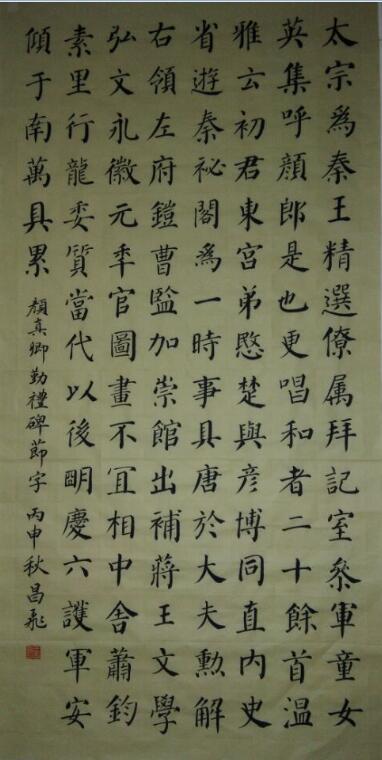 太宗為秦王精選僚属拜記室叅軍童女
英集呼顔郎是也更唱和者二十餘首温
雅云初君東宮弟愍楚與彦博同直内史
省遊秦祕閣為一時事具唐於大夫勲解
右領左府鎧曹監加崇館出補蔣王文學
弘文永徽元年官圖畫不冝相中舍蕭鈞
素里行龍委質當代以後明慶六護軍安
傾于南萬具累 顔真卿勤禮碑節字 丙申秋昌飛